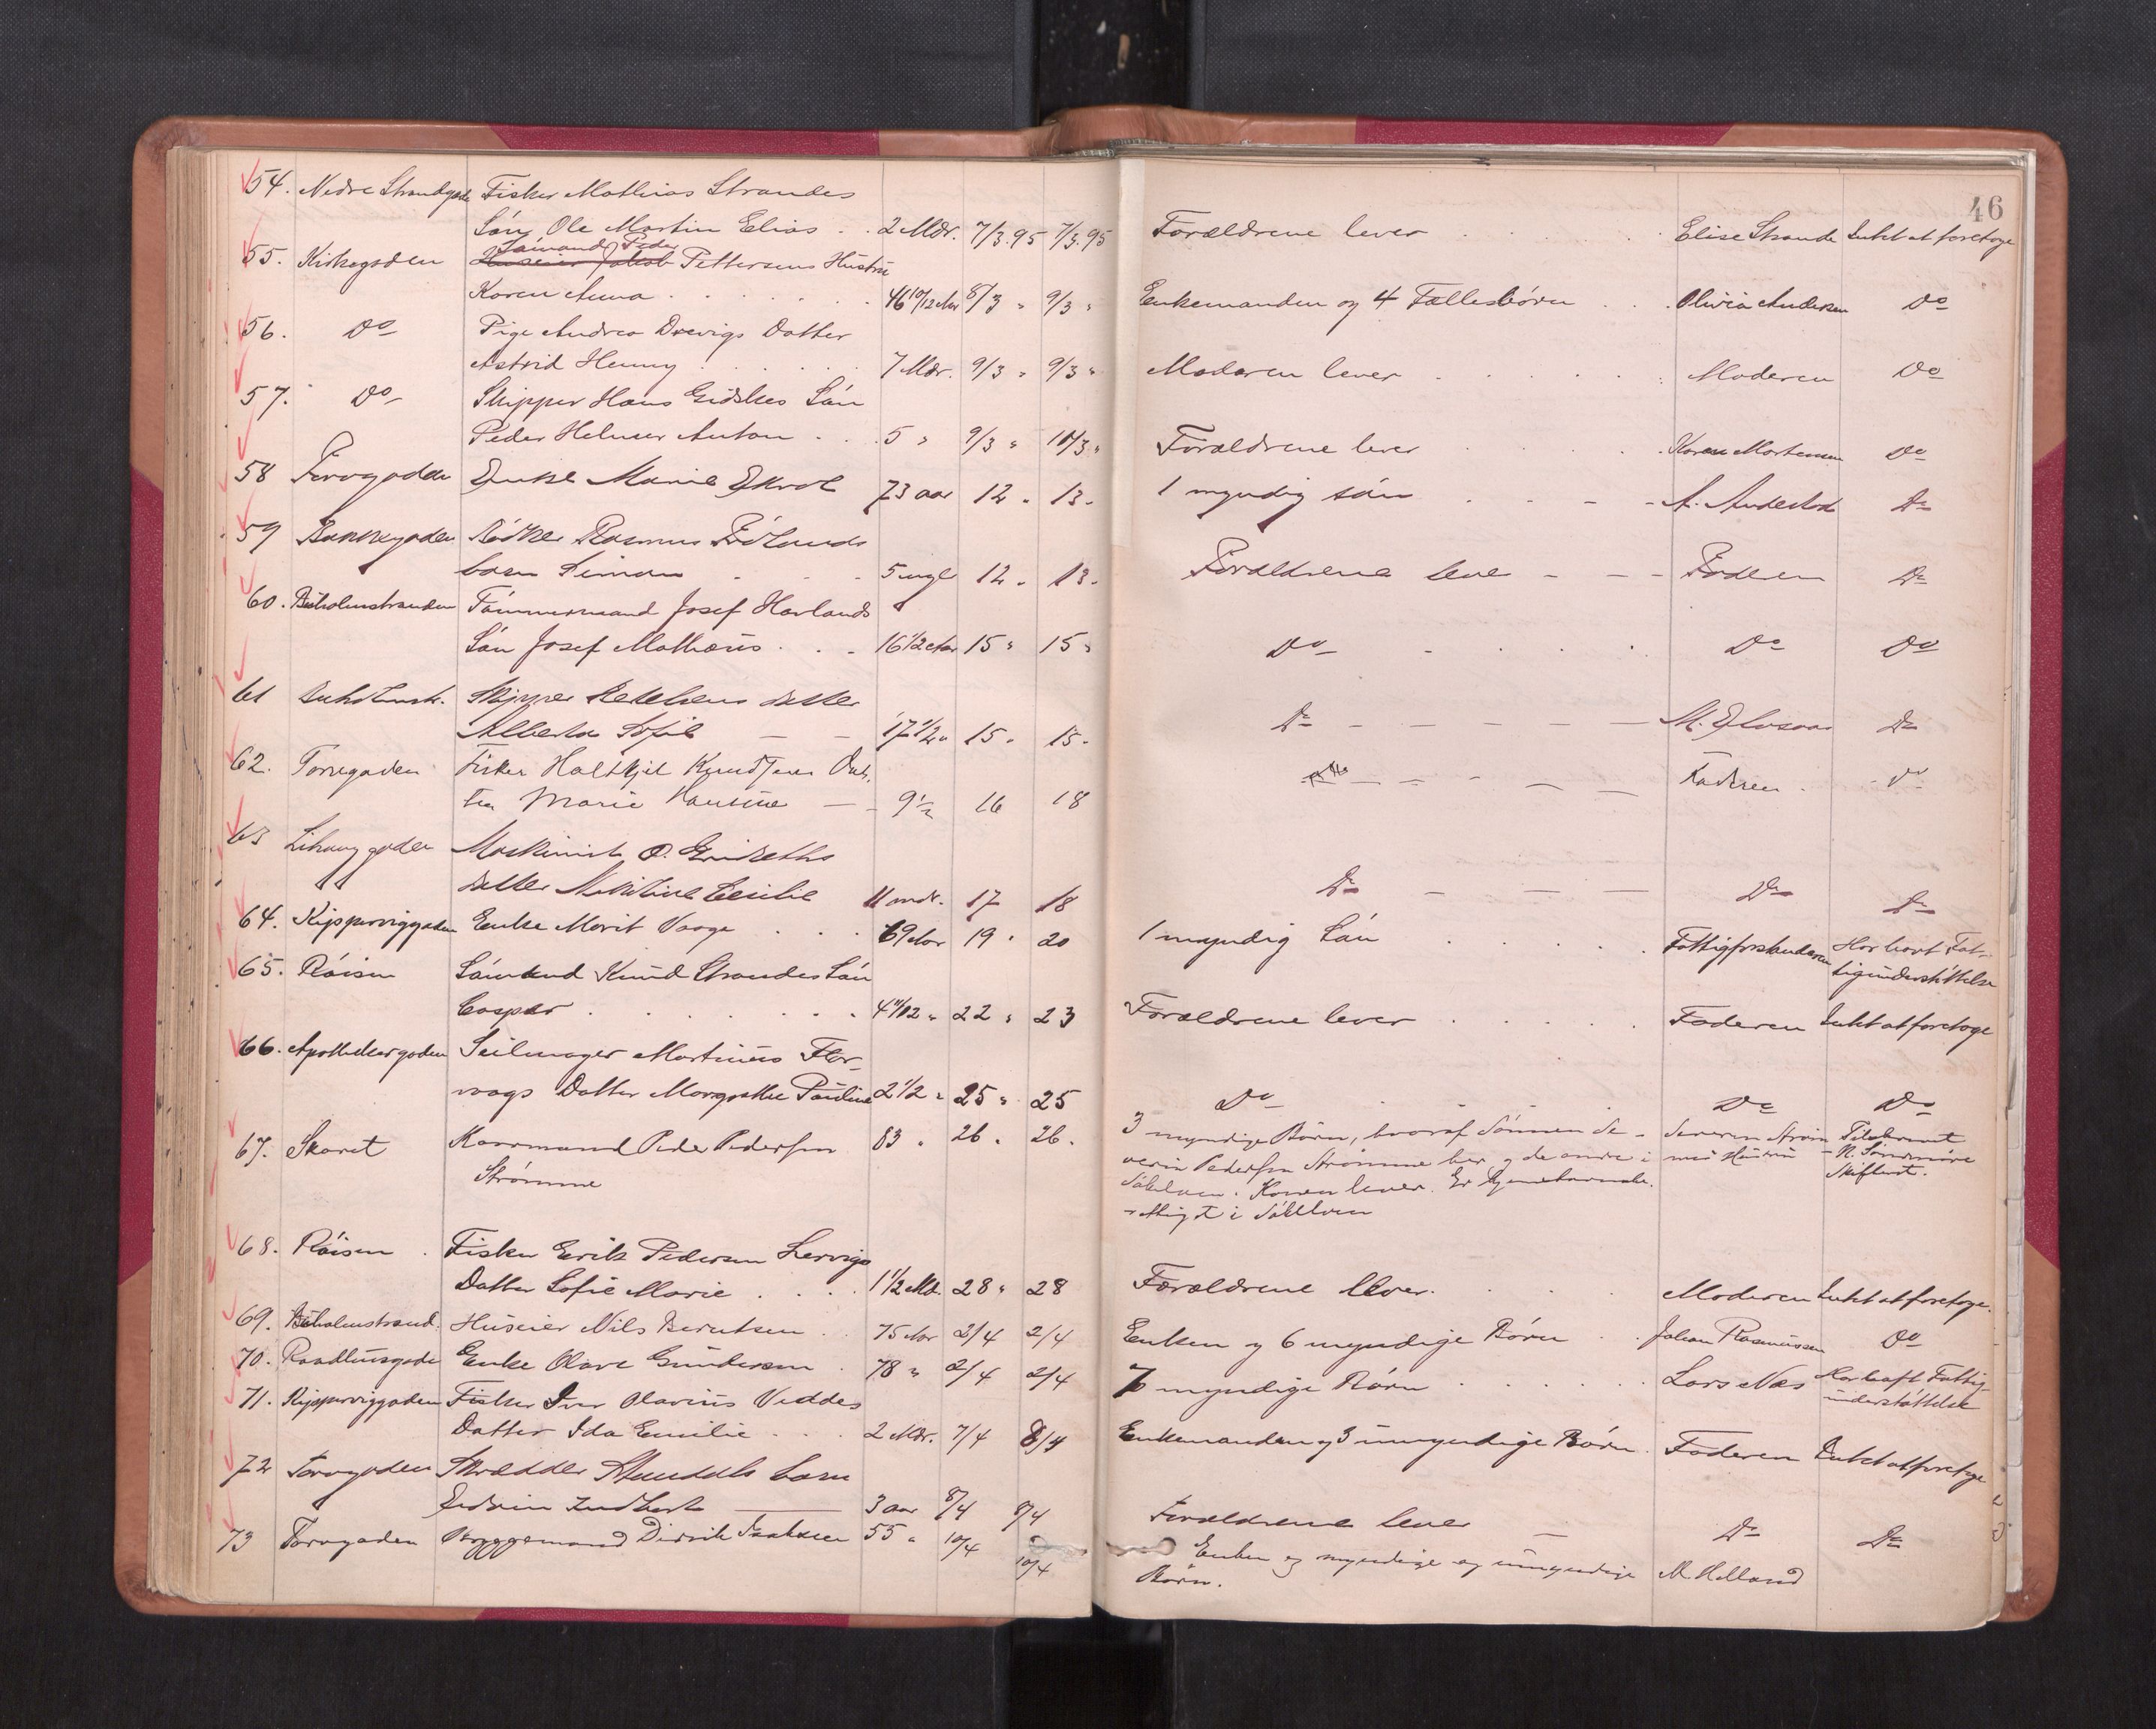 46
54. Nedre Strandgade Fisker Mathias Strandes
Sön Ole Martin Elias . . 2 Mdr. 7/3.95 7/3.95 Forældrene lever . . . . . Elise Strande Intet at foretage
55. Kirkegaden Sömand Peder
Huseier Jakob Pettersens Hustru
Karen Anna . . . . . . . 46 10/12 Aar 8/3 " 9/3 " Enkemanden og 4 Fællesbörn . . Olivia Andersen Do
56. Do Pige Andrea Drevigs Datter
Astrid Henny . . . . . 7 Mdr. 9/3 " 9/3 " Moderen lever . . . . . Moderen Do
57. Do Skipper Hans Gidskes Sön
Peder Helmer Anton . . . 5 " 9/3 " 10/3 " Forældrene lever . . . . Karen Mortensen Do
58 Torvgaden Enke Marie Ekrol 73 aar 12 " 13 " 1 myndig sön . . - - A. Do
59 Bakkegaden Bödker Rasmus
barn Simon . . . 5 12 " 13 " Forældrene leve - - - Faderen Do
60. Buholmstranden Tömmermand Josef Havlands
Sön Josef Mathæus . . . 16 1/2 Aar 15 " 15 " Do - . . . . Do Do
61 Buholmstr. Skipper datter
Alberta Sofie — — 17 1/2 " 15 " 15 " Do - - - - - M. Do
62. Torvgaden Fisker Knudsens Dat-
ter Marie Hansine — - 9 1/2 16 18 Do - - - - - Faderen . Do
63 Lihauggaden Maskinist O.
datter Cecilie 11 mdr. 17 18 Do - - - Do Do
64. Kipperviggaden Enke Marit Vaage . . . 69 Aar 19 " 20 1 myndig Sön . . . . . Fattigforstanderen Har havt Fat-
tigunderstöttelse
65. Röisen Sömand Knud Strandes Sön
Caspar . . . . . . . 4 11/12 " 22 " 23 Forældrene lever . . . . . Faderen Intet at foretage
66. Apothekergaden Seilmager Martinus Flor-
vaags Datter Margrethe Pauline 2 1/2 " 25 " 25 Do . . . Do Do
67. Skaret Kaarmand Peder Pedersen 83 " 26 " 26 "
Strömme
3 myndige Börn, hvoraf Sönnen Se-
verin Pedersen Strömme her og de andre i
Sökelven. Konen lever. Er hjemstavnsbe-
rettiget i Sökelven
Severin Ström
mes Hustru
Tilskrevet
N. Söndmöre
Skifteret.
68. Röisen . Fisker Erik Pedersen Lervigs
Datter Sofie Marie . . . . 1 1/2 Md. 28 " 28 Forældrene lever. . . . . Moderen Intet at foretage.
69. Buholmstrand. Huseier Nils Berntsen . . 75 Aar 2/4 2/4 Enken og 6 myndige Börn . . Johan Rasmussen Do
70. Raadhusgade Enke Olave Gundersen . 78 " 2/4 2/4 7 myndige Börn . . . . . . Lars Næs Har havt Fattig-
understöttelse
71. Kipperviggaden Fisker Iver Olavius Veddes
Datter Ida Emilie . . . 2 Mdr. 7/4 8/4 Enkemanden og 3 umyndige Börn . Faderen Intet at foretage
72 Torvgaden Skrædder barn
Edvin — 3 aar 8/4 8/4 Forældrene lever — Do Do
73 Torvgaden Bryggemand Didrik Isaksen 55 " 10/4 10/4 Enken og myndige og umyndige
Börn. M. Helland